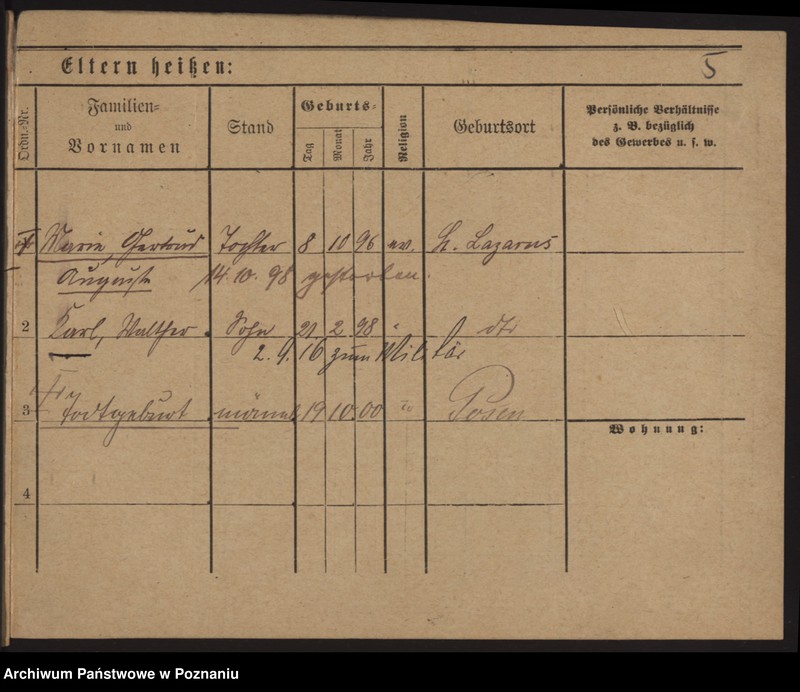 Eltern heißen:
5
Ordn.-Nr.
Familien-
und
Vornamen
Stand
Geburts-
Tag
Monat
Jahr
Religion
Geburtsort
Persönliche Verhältnisse
z. B. bezüglich
des Gewerbes u. s. w.
Marie, Gertrud Tochter 8 10 96 ev. St. Lazarus
Auguste 14. 10. 98 gestorben.
2 Karl, Walther Sohn 21 2 98 " dto
2. 9. 16 zum Militär
3 Todtgeburt männl. 19 10. 00 " Posen
Wohnung:
4
Archiwum Państwowe w Poznaniu